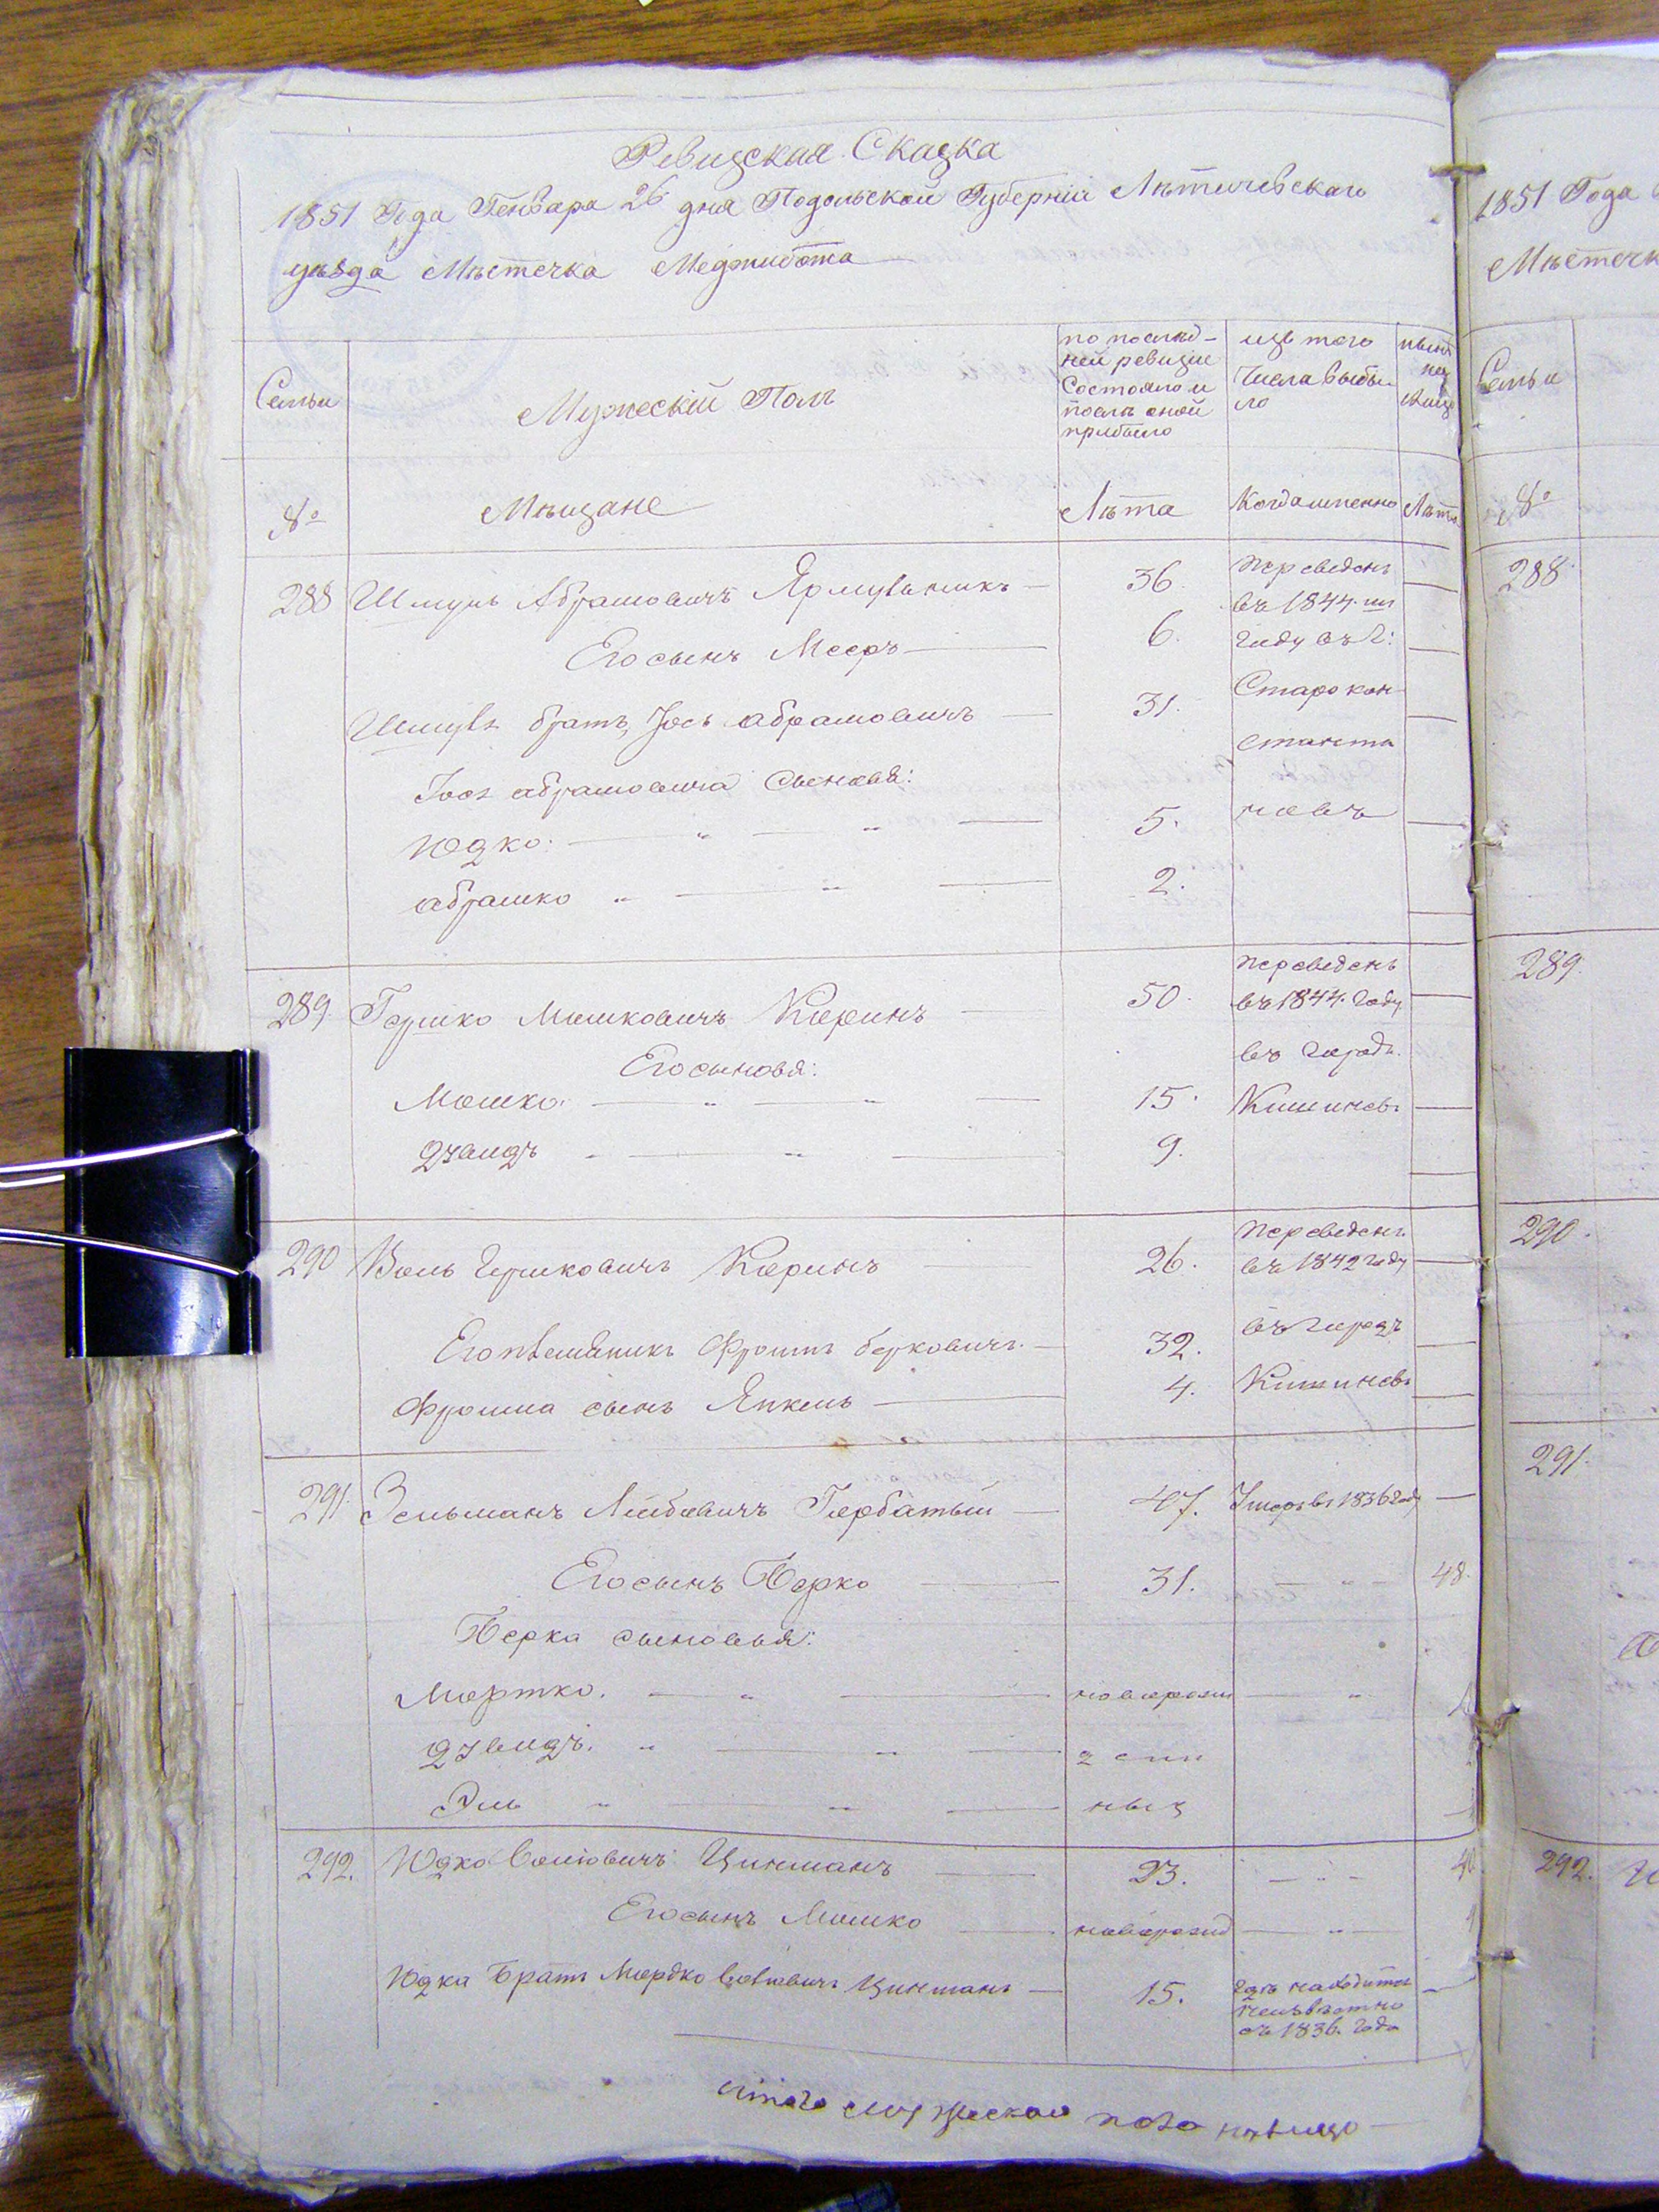 Ревизская Сказка
1851 Года Генваря 26 дня Подольской Губерніи Лѣтичевскаго
уѣзда Мѣстечка Меджибожа
Семьи
Мужескій Полъ
по послѣд-
ней ревизіи
Состояло и
послѣ оной
прибыло
изъ того
Числа выбы
ло
нынѣ
на
лицо
№
Мѣщане
Лѣта
Когда именно
Лѣта
288 Шмуль Абрамовичъ Ярмульникъ 36. переведенъ
въ 1844. мъ
Его сынъ Мееръ 6. году въ г:
Старокон
Шмуля братъ Іось абрамовичъ 31.
стантин
Іося абрамовича Сыновья:
Юдко: 5. новъ
абрамко 2.
289. Гершко Мошковичъ Коринъ 50. переведенъ
въ 1844. году
въ городъ
Его сыновья:
Мошко. 15. Кишиневъ
Дувидъ 9.
290 Воль Гершковичъ Коринъ 26. переведенъ
въ 1842 году
въ городъ
Его племяникъ Фроимъ берковичъ. 32.
Фроима сынъ Янкель 4. Кишиневъ
291. Зельманъ Лейбовичъ Горбатый 47. Умеръ въ 1836 году
Его сынъ Берко 31. 48.
Берка сыновья:
Мортко. новорож
Дувидъ.
Эль ныя
292. Юдко Волковичъ Цинманъ 23. 40
Его сынъ Мошко новорожд
Юдка Братъ Мордко Волковичъ Цинманъ 15. гдѣ находится
неизвѣстно
съ 1836. года
итого мужескаго пола налицо
1851 Года
Мѣстечк
Семьи
№
288.
289.
290.
291.
292.